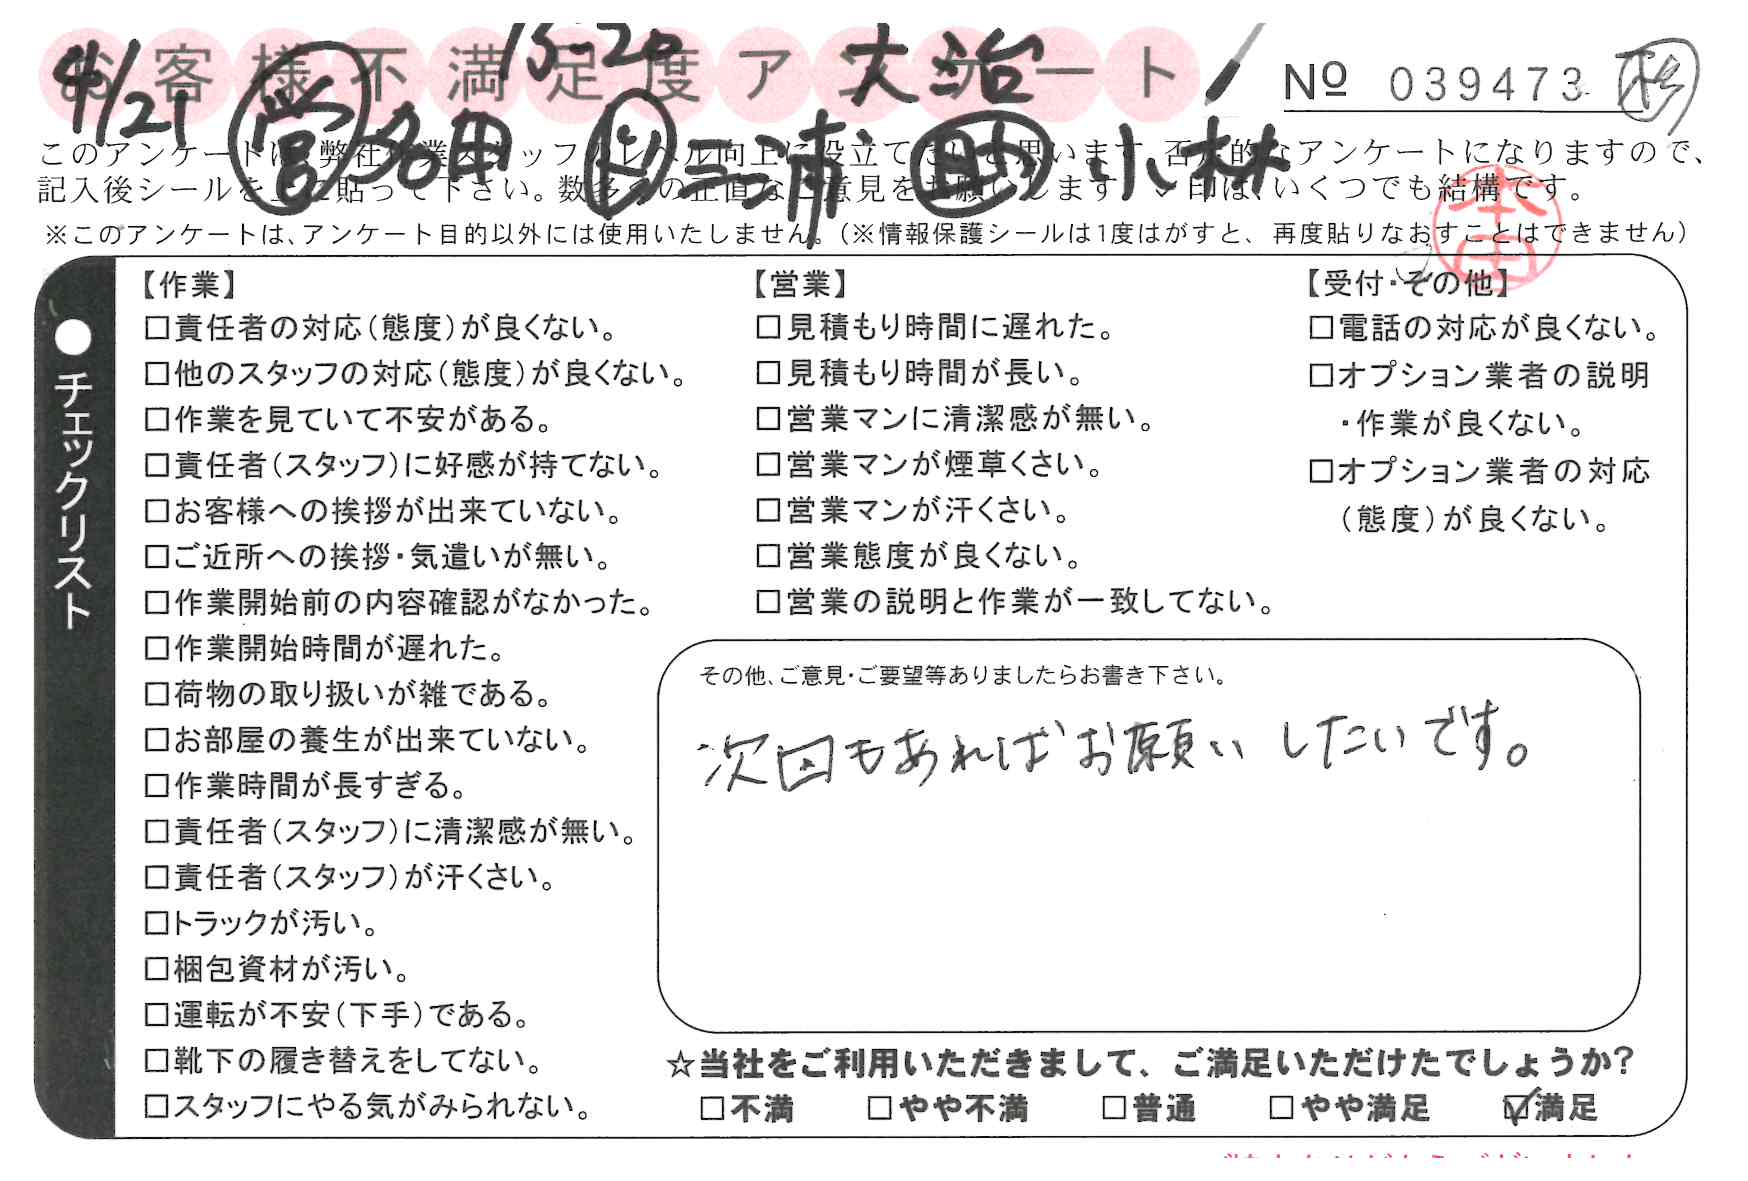 お客様不満足度アンケート
4/21 15-20 大治
№ 039473 杉
営 名田 ド 三浦 助 小林
このアンケートは、弊社作業スタッフのレベル向上に役立てたいと思います。否定的なアンケートになりますので、
記入後シールを上に貼って下さい。数多くの正直なご意見をお願いします。✓印は、いくつでも結構です。
※このアンケートは、アンケート目的以外には使用いたしません。(※情報保護シールは1度はがすと、再度貼りなおすことはできません)
本田
●チェックリスト
【作業】
□責任者の対応(態度)が良くない。
□他のスタッフの対応(態度)が良くない。
□作業を見ていて不安がある。
□責任者(スタッフ)に好感が持てない。
□お客様への挨拶が出来ていない。
□ご近所への挨拶・気遣いが無い。
□作業開始前の内容確認がなかった。
□作業開始時間が遅れた。
□荷物の取り扱いが雑である。
□お部屋の養生が出来ていない。
□作業時間が長すぎる。
□責任者(スタッフ)に清潔感が無い。
□責任者(スタッフ)が汗くさい。
□トラックが汚い。
□梱包資材が汚い。
□運転が不安(下手)である。
□靴下の履き替えをしてない。
□スタッフにやる気がみられない。
【営業】
□見積もり時間に遅れた。
□見積もり時間が長い。
□営業マンに清潔感が無い。
□営業マンが煙草くさい。
□営業マンが汗くさい。
□営業態度が良くない。
□営業の説明と作業が一致してない。
【受付・その他】
□電話の対応が良くない。
□オプション業者の説明
・作業が良くない。
□オプション業者の対応
(態度)が良くない。
その他、ご意見・ご要望等ありましたらお書き下さい。
次回もあればお願いしたいです。
☆当社をご利用いただきまして、ご満足いただけたでしょうか?
□不満 □やや不満 □普通 □やや満足 ☑満足